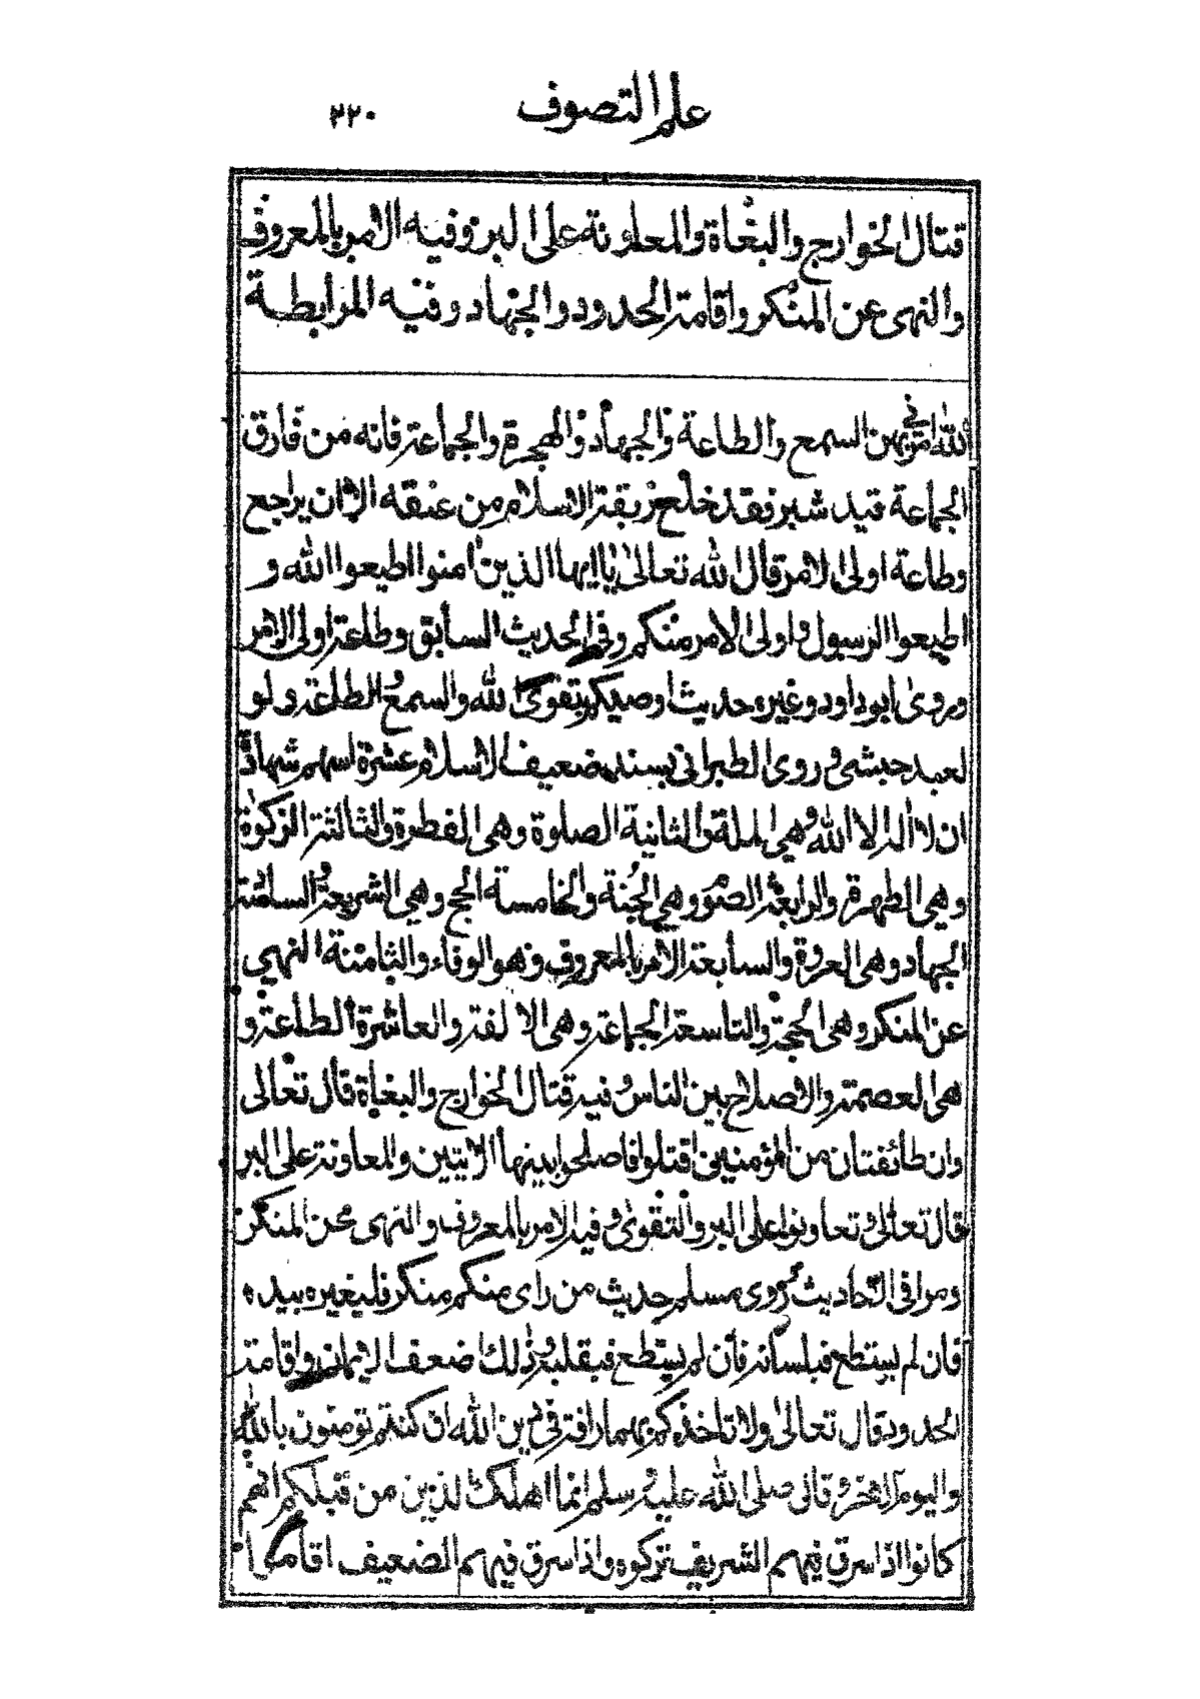 علم التصوف ٢٢٠
قتال الخوارج والبغاة والمعاونة على البر وفيه الامر بالمعروف
والنهى عن المنكر واقامة الحدود والجهاد وفيه المرابطة
الله امرنى بهن السمع والطاعة والجهاد والهجرة والجماعة فانه من فارق
الجماعة قيد شبر فقد خلع ربقة الاسلام من عنقه الا ان يراجع
وطاعة اولى الامر قال الله تعالى يا ايها الذين امنوا اطيعوا الله و
اطيعوا الرسول واولى الامر منكم وفى الحديث السابق وطاعة اولى الامر
وروى ابو داود وغيره حديث اوصيكم بتقوى الله والسمع والطاعة ولو
لعبد حبشى وروى الطبرانى بسند ضعيف الاسلام عشرة اسهم شهادة
ان لا اله الا الله وهى الملة والثانية الصلوة وهى الفطرة والثالثة الزكوة
وهى الطهرة والرابعة الصوم وهى الجنة والخامسة الحج وهى الشريعة والسادسة
الجهاد وهى العروة والسابعة الامر بالمعروف وهو الوفاء والثامنة النهى
عن المنكر وهى الحجة والتاسعة الجماعة وهى الالفة والعاشرة الطاعة و
هى العصمة والاصلاح بين الناس وفيه قتال الخوارج والبغاة قال تعالى
وان طائفتان من المؤمنين اقتتلوا فاصلحوا بينهما الايتين والمعاونة على البر
قال تعالى وتعاونوا على البر والتقوى وفيه الامر بالمعروف والنهى عن المنكر
ومرا فى احاديث وروى مسلم حديث من راى منكم منكر فليغيره بيده
فان لم يستطع فبلسانه فان لم يستطع فبقلبه وذلك اضعف الايمان واقامة
الحدود قال تعالى ولا تاخذكم بهما رافة فى دين الله ان كنتم تومنون بالله
واليوم الاخر وقال صلى الله عليه وسلم انما اهلك الذين من قبلكم انهم
كانوا اذا سرق فيهم الشريف تركوه واذا سرق فيهم الضعيف اقاموا